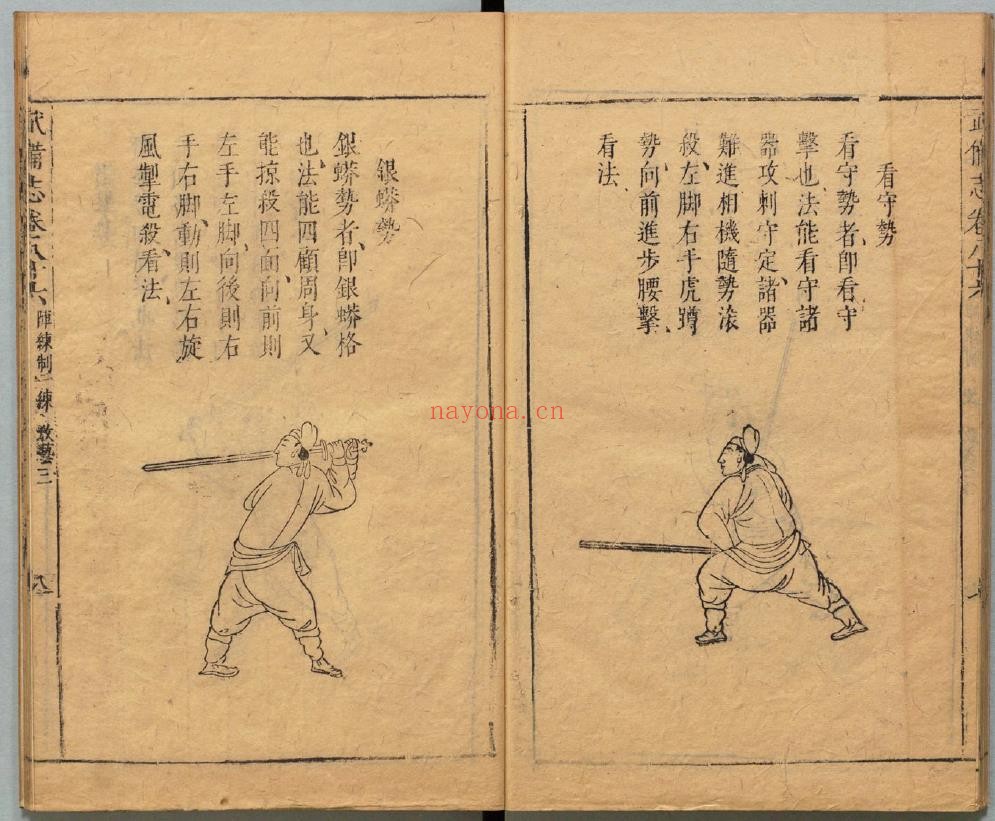 看守勢
看守勢者、即看守
擊也、法能看守諸
器攻刺守定、諸器
難進相機隨勢滚
殺、左脚右手虎蹲
勢、向前進步腰擊、
看法、
武備志卷八十六
銀蟒勢
銀蟒勢者、即銀蟒格
也、法能四顧周身、又
能掠殺四面、向前則
左手左脚、向後則右
手右脚、動則左右旋
風掣電殺、看法、
武備志卷八十六 陣練制 練 教藝三
八
nayona.cn